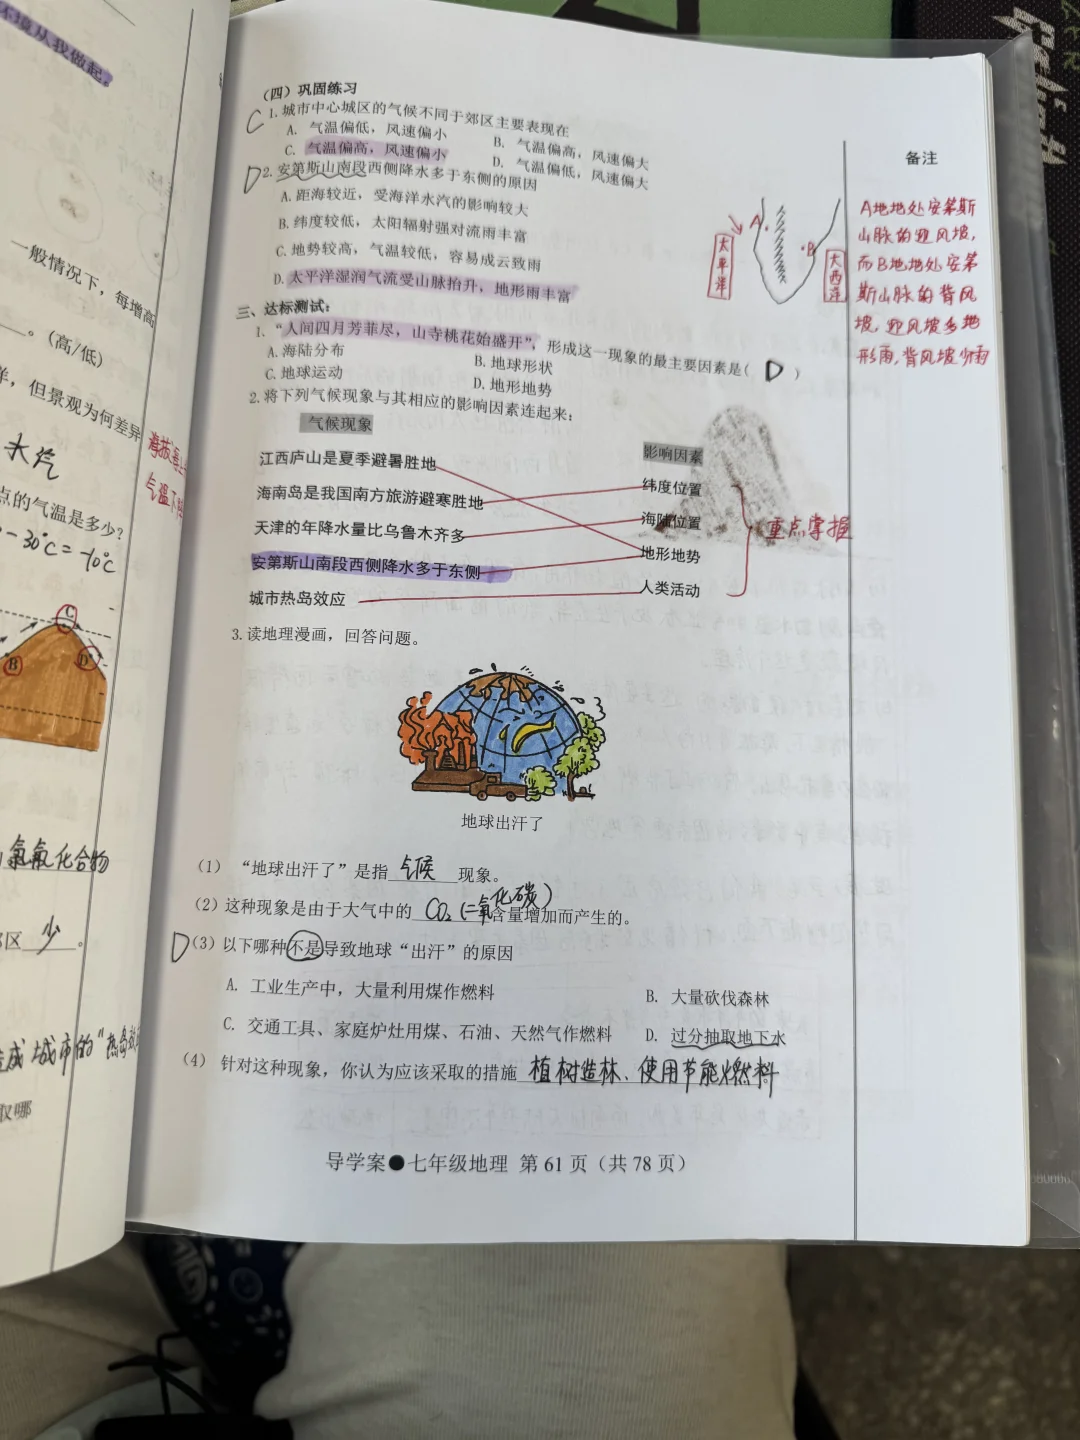 环境从我做起。
一般情况下，每增高
。（高/低）
样，但景观为何差异
水汽
海拔每
气温下
点的气温是多少？
-30℃=-10℃
C
B
D
氯氟化合物
区 少 。
成城市的“热岛效
取哪
（四）巩固练习
C 1. 城市中心城区的气候不同于郊区主要表现在
A. 气温偏低，风速偏小 B. 气温偏高，风速偏大
C. 气温偏高，风速偏小 D. 气温偏低，风速偏大
D 2. 安第斯山南段西侧降水多于东侧的原因
A. 距海较近，受海洋水汽的影响较大
B. 纬度较低，太阳辐射强对流雨丰富
C. 地势较高，气温较低，容易成云致雨
D. 太平洋湿润气流受山脉抬升，地形雨丰富
三、达标测试：
1. “人间四月芳菲尽，山寺桃花始盛开”，形成这一现象的最主要因素是( D )
A. 海陆分布 B. 地球形状
C. 地球运动 D. 地形地势
2. 将下列气候现象与其相应的影响因素连起来：
气候现象 影响因素
江西庐山是夏季避暑胜地 纬度位置
海南岛是我国南方旅游避寒胜地 海陆位置
天津的年降水量比乌鲁木齐多 地形地势
安第斯山南段西侧降水多于东侧 人类活动
城市热岛效应
重点掌握
3. 读地理漫画，回答问题。
地球出汗了
（1）“地球出汗了”是指 气候 现象。
（2）这种现象是由于大气中的 CO₂（二氧化碳） 含量增加而产生的。
D（3）以下哪种不是导致地球“出汗”的原因
A. 工业生产中，大量利用煤作燃料 B. 大量砍伐森林
C. 交通工具、家庭炉灶用煤、石油、天然气作燃料 D. 过分抽取地下水
（4）针对这种现象，你认为应该采取的措施 植树造林、使用节能燃料
导学案●七年级地理 第 61 页（共 78 页）
备注
太平洋
A
B
大西洋
A地地处安第斯
山脉的迎风坡，
而B地地处安第
斯山脉的背风
坡，迎风坡多地
形雨，背风坡少雨